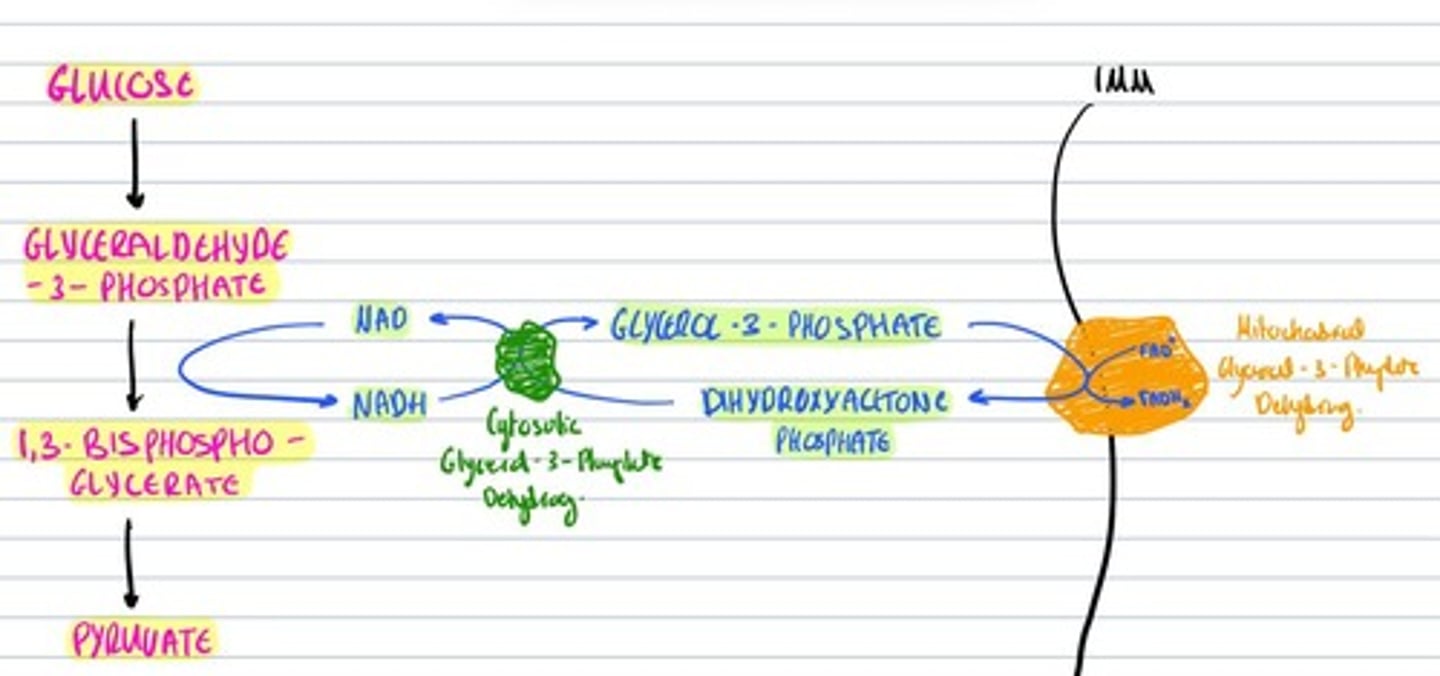 GLUCOSE
IMM
GLYCERALDEHYDE
-3- PHOSPHATE
NAD
GLYCEROL-3-PHOSPHATE
FAD+
NADH
DIHYDROXYACETONE
PHOSPHATE
FADH₂
Glycerol-3-
Dehydrog.
1,3-BISPHOSPHO-
GLYCERATE
Cytosolic
Glycerol-3-
Dehydrog.
PYRUVATE